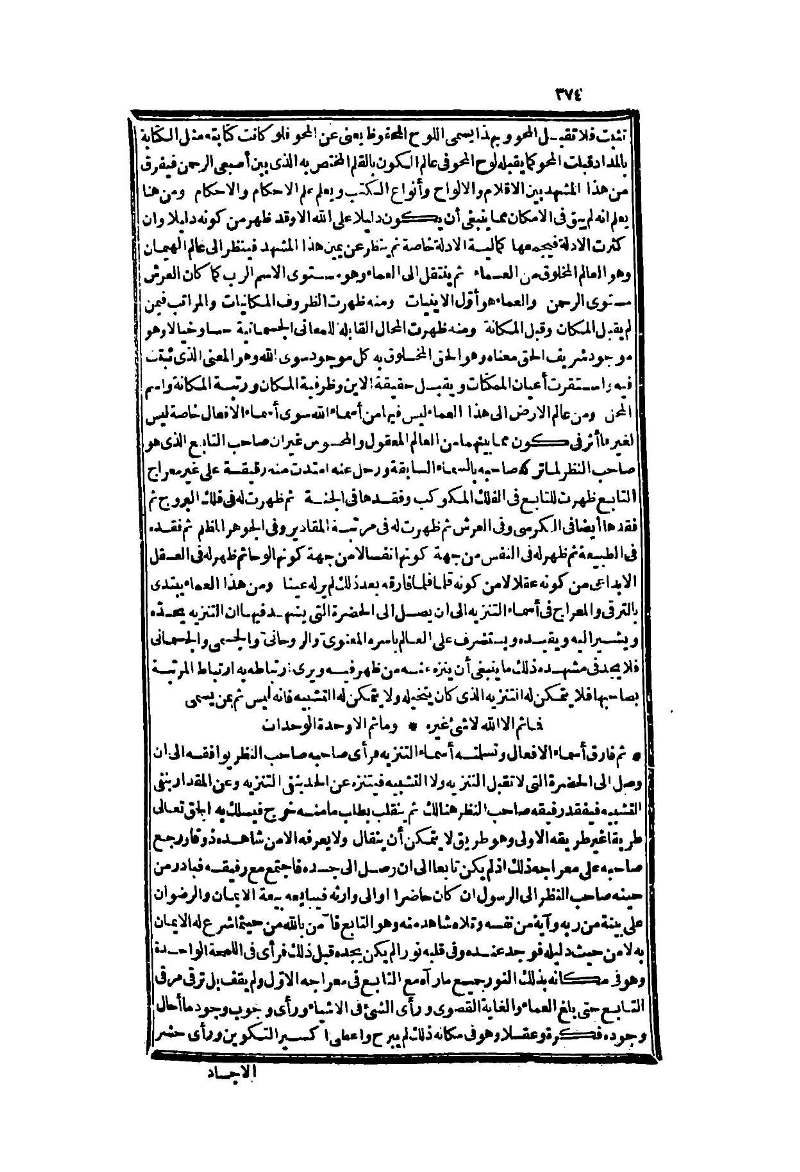 ٣٧٤
تثبت فلا تقبل المحو وبهذا يسمى اللوح المحفوظ يعنى عن المحو فلو كانت كتابته مثل الكتابة
بالمداد قبلت المحو كما يقبله لوح المحو فى عالم الكون بالقلم المختص به الذى بين أصبعى الرحمن فيفرق
من هذا المشهد بين الاقلام والالواح وأنواع الكتب ويعلم علم الاحكام والاحكام ومن هنا
يعلم انه لم يبق فى الامكان مما ينبغى أن يكون دليلا على الله الا وقد ظهر من كونه دليلا وان
كثرت الادلة فيجمعها كالية الادلة خاصة ثم ينظر عن يمين هذا المشهد فينظر الى عالم الهيمان
وهو العالم المخلوق من العماء ثم ينتقل الى العماء وهو مستوى الاسم الرب كما كان العرش
مستوى الرحمن والعماء هو أول الاينيات ومنه ظهرت الظروف المكانيات والمراتب فيمن
لم يقبل المكان وقبل المكانة ومنه ظهرت المحال القابلة للمعانى الجسمانية حسا وخيالا وهو
موجود شريف الحق معناه وهو الحق المخلوق به كل موجود سوى الله وهو المعنى الذى ثبتت
فيه واستقرت أعيان الممكنات ويقبل حقيقة الاين وظرفية المكان ورتبة المكانة واسم
المحل ومن عالم الارض الى هذا العماء ليس فيها من أسماء الله سوى أسماء الافعال خاصة ليس
لغيرها أثر فى كون مما بينهما من العالم المعقول والمحسوس غير ان صاحب التابع الذى هو
صاحب النظر لما تركه صاحبه بالسماء السابعة ورحل عنه امتدت منه رقيقة على غير معراج
التابع ظهرت للتابع فى الفلك المكوكب وفقدها فى الجنة ثم ظهرت له فى فلك البروج ثم
فقدها أيضا فى الكرسى وفى العرش ثم ظهرت له فى مرتبة المقادير وفى الجوهر المظلم ثم فقده
فى الطبيعة ثم ظهر له فى النفس من جهة كونها نفسا لا من جهة كونها لوحا ثم ظهر له فى العقل
الابداعى من كونه عقلا لا من كونه قلما فلما فارقه بعد ذلك لم ير له عينا ومن هذا العماء يبتدى
بالترقى والمعراج فى أسماء التنزيه الى ان يصل الى الحضرة التى يشهد فيها ان التنزيه يحده
ويشير اليه ويقيده ويستشرف على العالم باسره المعنوى والروحانى والجسمى والجسمانى
فلا يجد فى مشهده ذلك ما ينبغى أن ينزه عنه من ظهر فيه ويرى ارتباطه به ارتباط المرتبة
بصاحبها فلا يتمكن له التنزيه الذى كان يتخيله ولا يتمكن له التشبيه فانه ليس ثم بمن يسمى
فما ثم الا الله لا شئ غيره * وما ثم الا وحدة الوحدات
* ثم فارق أسماء الافعال وتسلمته أسماء التنزيه فرأى صاحبه صاحب النظر يوافقه الى ان
وصل الى الحضرة التى لا تقبل التنزيه ولا التشبيه فيتنزه عن الحد بنفى التنزيه وعن المقدار بنفى
التشبيه فيفقد رفيقه صاحب النظر هنالك ثم ينقلب يطلب ما منه خرج فيسلك به الحق تعالى
طريقا غير طريقه الاولى وهو طريق لا يتمكن أن ينقال ولا يعرفه الا من شاهده ذوقا ورجع
صاحبه على معراجه ذلك اذ لم يكن تابعا الى ان وصل الى جسده فاجتمع مع رفيقه فبادر من
حينه صاحب النظر الى الرسول ان كان حاضرا او الى وارثه فبايعه بيعة الايمان والرضوان
على بينة من ربه وآية من نفسه وتلاه شاهد منه وهو التابع فآمن بالله من حيث ما شرع له الايمان
به لا من حيث دليله فوجد عنده وفى قلبه نورا لم يكن يجده قبل ذلك فرأى فى اللمحة الواحدة
وهو فى مكانه بذلك النور جميع ما رآه مع التابع فى معراجه الاول ولم يقف بل ترقى مرقى
التابع حتى بلغ العماء والغاية القصوى ورأى الشئ فى الاشياء ورأى وجوب وجود ما أحال
وجوده فكرة وعقلا وهو فى مكانه ذلك لم يبرح واعطى اكسير التكوين ورأى حشر
الاجساد